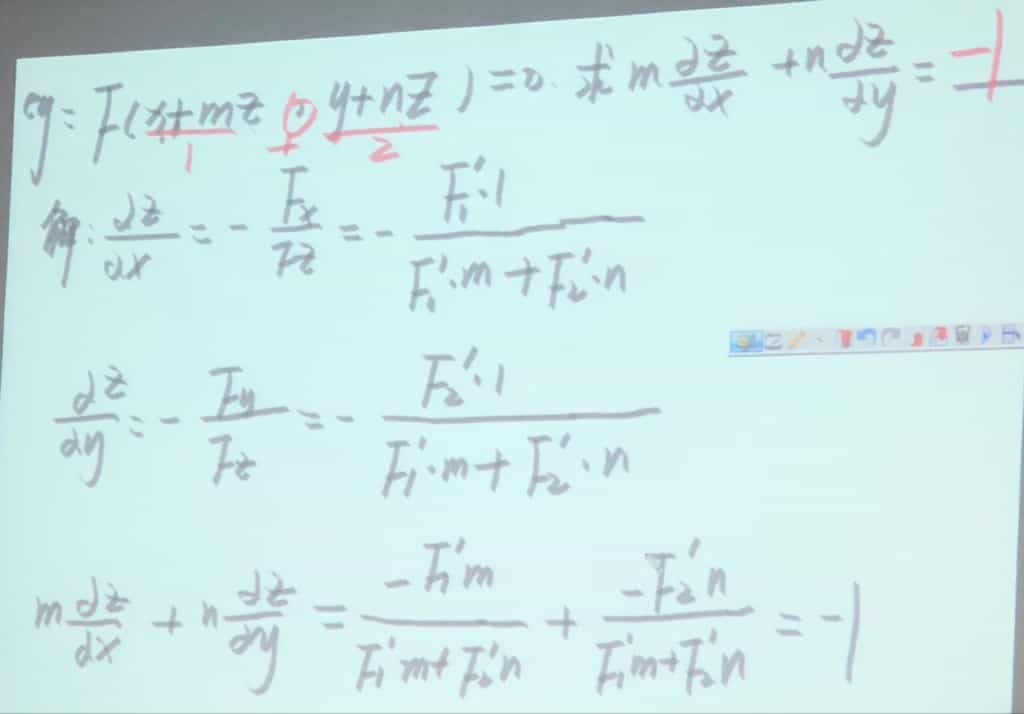 eg: F(x+mz, y+nz)=0. 求 m ∂z/∂x + n ∂z/∂y = -1
1 2
解: ∂z/∂x = - Fx/Fz = - F₁'·1/(F₁'·m + F₂'·n)
∂z/∂y = - Fy/Fz = - F₂'·1/(F₁'·m + F₂'·n)
m ∂z/∂x + n ∂z/∂y = -F₁'m/(F₁'m + F₂'n) + -F₂'n/(F₁'m + F₂'n) = -1